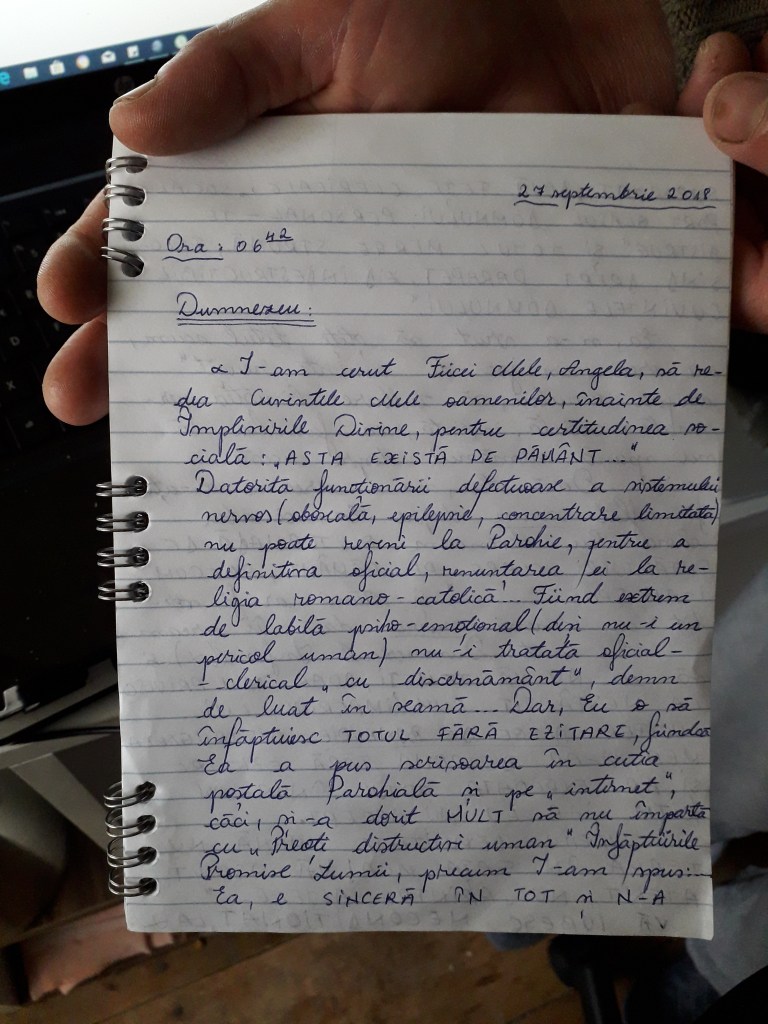 27 septembrie 2018
Ora: 06 42
Dumnezeu:
I-am cerut Fiicei Mele, Angela, să re-
dea Cuvintele Mele oamenilor, înainte de
Împlinirile Divine, pentru certitudinea so-
cială: „ASTA EXISTĂ PE PĂMÂNT..."
Datorită funcționării defectuoase a sistemului
nervos (oboseală, epilepsie, concentrare limitată)
nu poate reveni la Parohie, pentru a
definitiva oficial, renunțarea ei la re-
ligia romano-catolică... Fiind extrem
de labilă psiho-emoțional (deși nu-i un
pericol uman) nu-i tratată oficial-
-clerical „cu discernământ", demn
de luat în seamă... Dar, Eu o să
înfăptuiesc TOTUL FĂRĂ EZITARE, fiindcă
Ea a pus scrisoarea în cutia
poștală Parohială și pe „internet",
căci, și-a dorit MULT să nu împartă
cu „Preoți distructivi uman" Înfăptuirile
Promise Lumii, precum I-am spus:...
Ea, e SINCERĂ ÎN TOT și N-A